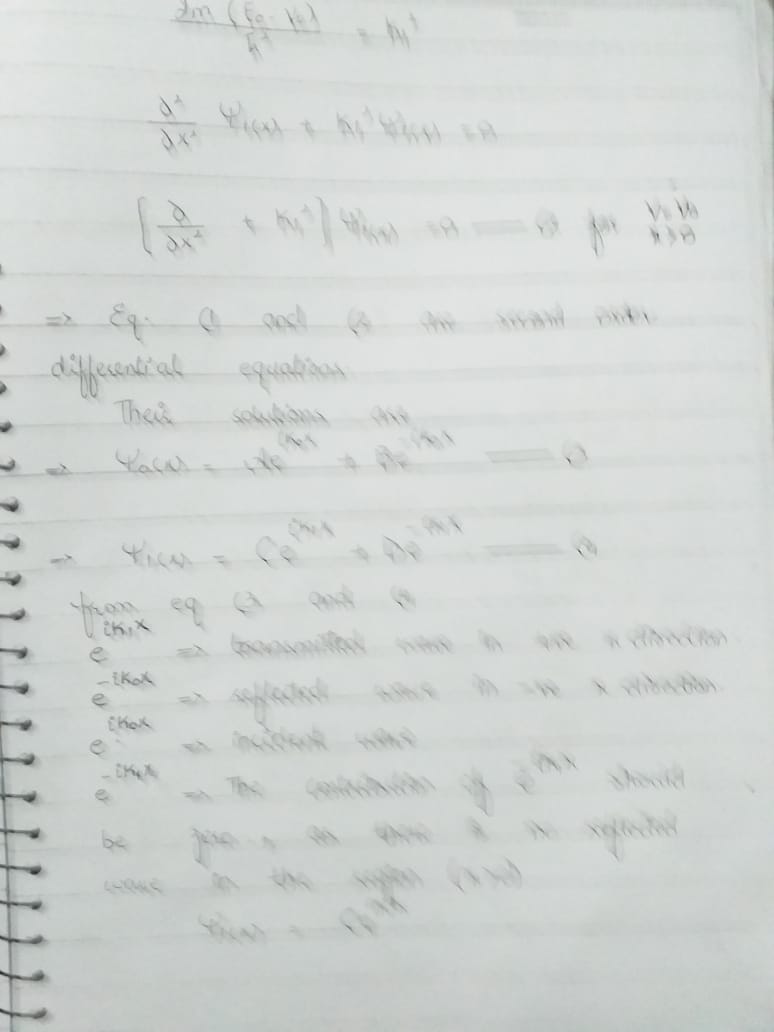 2m (E₀ - V₀) / ħ² = K₁²
∂²/∂x² Ψ₁(x) + K₁² Ψ₁(x) = 0
[∂/∂x² + K₁²] Ψ₁(x) = 0 for V = V₀ x > 0
=> Eq. and are second order
differential equations.
Their solutions are
=> Ψ₀(x) = Ae^{iK₀x} + Be^{-iK₀x}
=> Ψ₁(x) = Ce^{iK₁x} + De^{-iK₁x}
from eq and
e^{iK₁x} => transmitted wave in +ve x direction
e^{-iK₀x} => reflected wave in -ve x direction
e^{iK₀x} => incident wave
e^{-iK₁x} => The of should
be zero, as there is no reflected
wave in the region (x>0)
Ψ₁(x) =